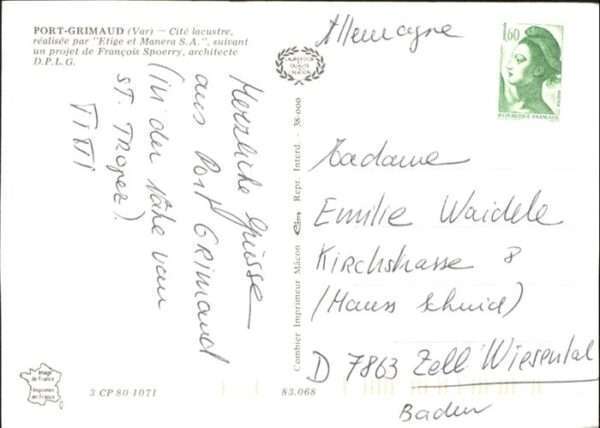 PORT-GRIMAUD (Var) — Cité lacustre,
réalisée par "Etige et Manera S.A.", suivant
un projet de François Spoerry, architecte
D.P.L.G.
Herzliche Grüsse
aus Port GRimaud
(in der Nähe von
ST. TROPEZ).
TITI
Combier Imprimeur Mâcon Cim Repr. Interd. - 38-000
Allemagne
1,60
REPUBLIQUE FRANÇAISE
Madame
Emilie Waidele
Kirchstrasse 8
(Haus Schmid)
D 7863 Zell Wiesental
Baden
Image
de France
Imprimée
en France
3 CP 80 1071
83.068